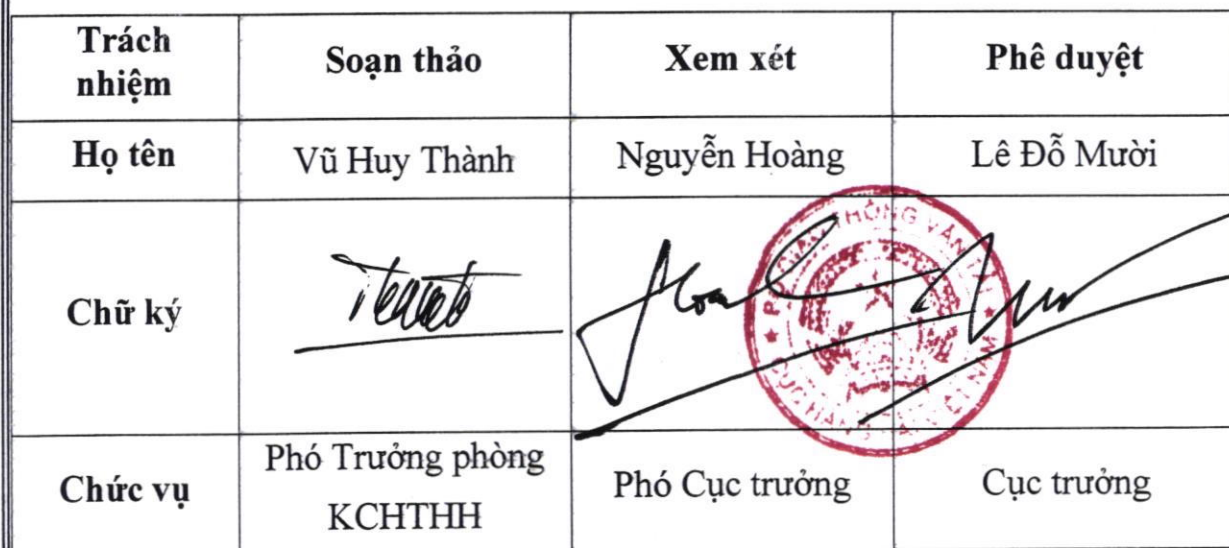 Trách
nhiệm
Soạn thảo
Xem xét
Phê duyệt
Họ tên
Vũ Huy Thành
Nguyễn Hoàng
Lê Đỗ Mười
Chữ ký
Chức vụ
Phó Trưởng phòng
KCHTHH
Phó Cục trưởng
Cục trưởng